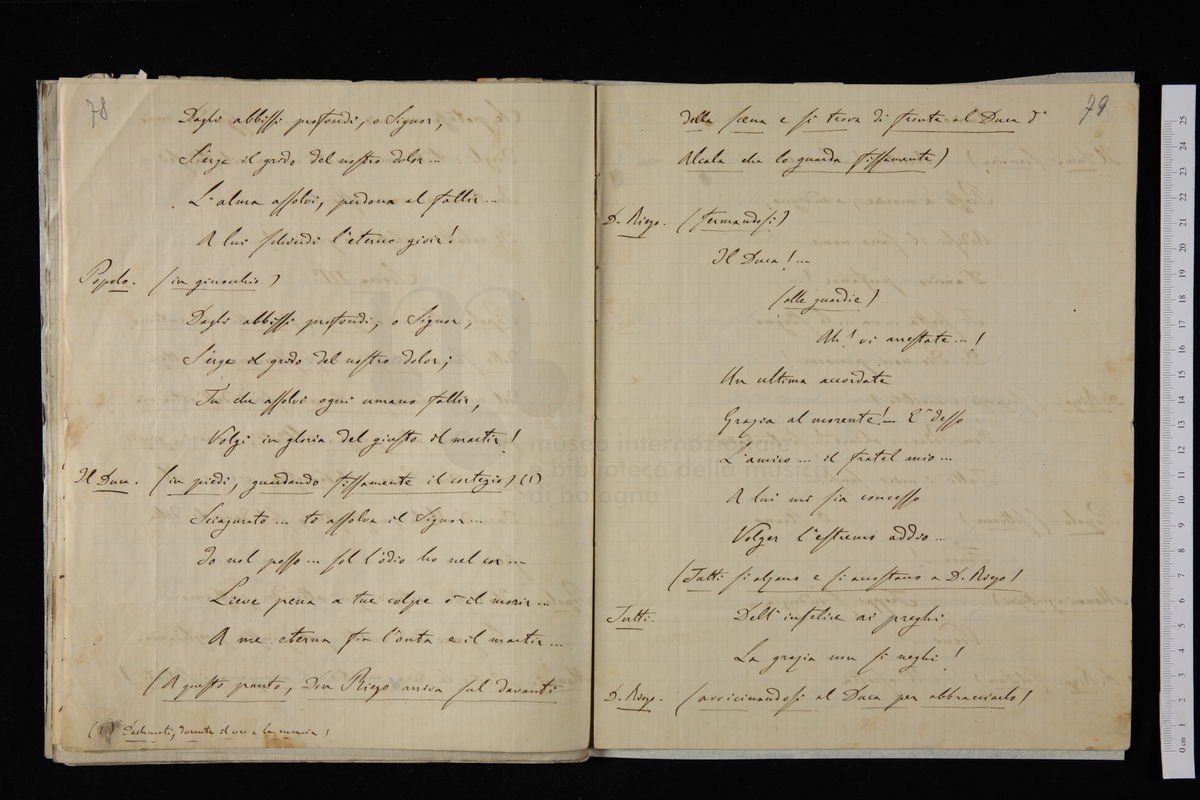 78
Dagli abbissi profondi, o Signor,
S'erge il grido del nostro dolor...
L'alma assolvi, perdona al fallir...
A lui schiudi l'eterno gioir!
Popolo. (in ginocchio)
Dagli abbissi profondi, o Signor,
S'erge il grido del nostro dolor;
Tu che assolvi ogni umano fallir,
Volgi in gloria del giusto il martir!
Il Duca. (in piedi, guardando fissamente il corteggio) (1)
Sciagurato... te assolva il Signor...
Io nol posso... sol l'odio ho nel cor...
Lieve pena a tue colpe è il morir...
A me eterna fia l'onta e il martir...
(A questo punto, Don Riego arriva sul davanti
(1) Declamati, durante il coro e la marcia!
79
della scena e si trova di fronte al Duca d'
Alcala che lo guarda fissamente)
D. Riego. (fermandosi)
Il Duca!...
(alle guardie)
Ah! vi arrestate...!
Un ultima accordate
Grazia al morente! — E' desso
L'amico... il fratel mio...
A lui mi sia concesso
Volger l'estremo addio...
(Tutti si alzano e si accostano a D. Riego)
Tutti. Dell' infelice ai preghi
La grazia non si neghi!
D. Riego. (avvicinandosi al Duca per abbracciarlo)
museo internazionale
e biblioteca della musica
di bologna
0 cm 1 2 3 4 5 6 7 8 9 10 11 12 13 14 15 16 17 18 19 20 21 22 23 24 25